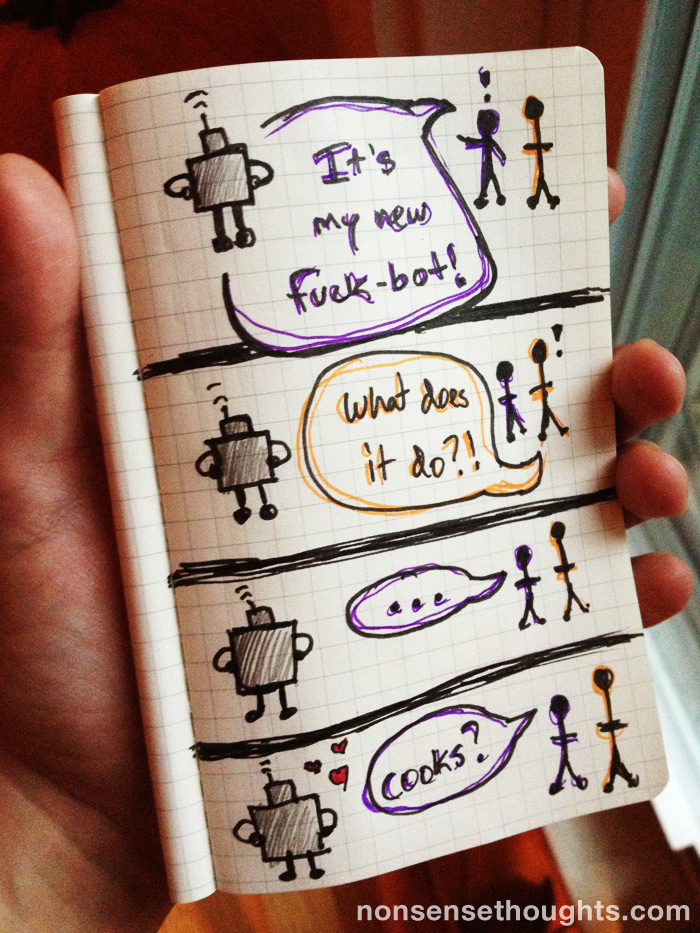 It's
my new
Fuck-bot!
What does
it do?!
...
cooks?
nonsensethoughts.com